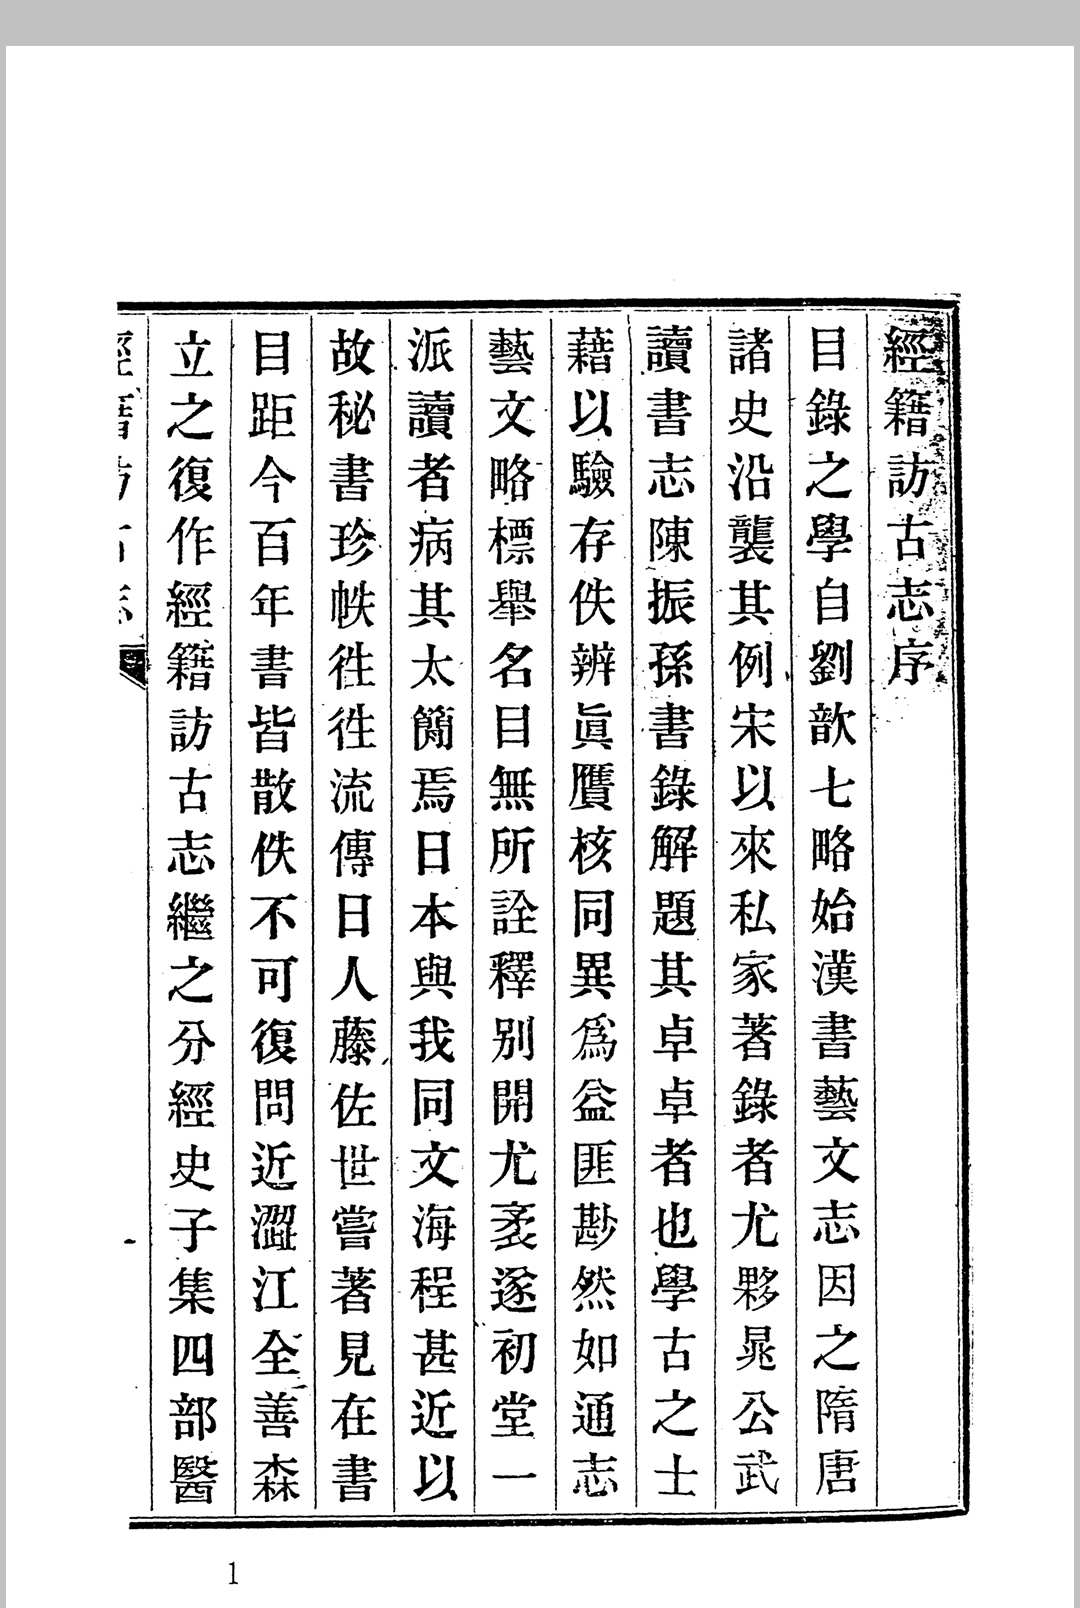 經籍訪古志序
目錄之學自劉歆七略始漢書藝文志因之隋唐
諸史沿襲其例宋以來私家著錄者尤夥晁公武
讀書志陳振孫書錄解題其卓卓者也學古之士
藉以驗存佚辨眞贋核同異爲益匪尠然如通志
藝文略標舉名目無所詮釋別開尤袤遂初堂一
派讀者病其太簡焉日本與我同文海程甚近以
故秘書珍帙徃徃流傳日人藤佐世嘗著見在書
目距今百年書皆散佚不可復問近澀江全善森
立之復作經籍訪古志繼之分經史子集四部醫
經籍訪古志
1